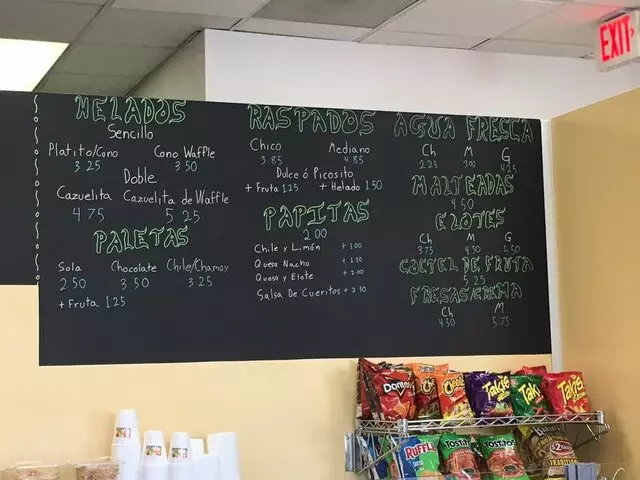 EXIT
HELADOS
Sencillo
Platito/Cono Cono Waffle
3.25 3.50
Doble
Cazuelita Cazuelita de Waffle
4.75 5.25
PALETAS
Sola Chocolate Chile/Chamoy
2.50 3.50 3.25
+ Fruta 1.25
RASPADOS
Chico Mediano
3.85 4.85
Dulce ó Picosito
+ Fruta 1.25 + Helado 1.50
PAPITAS
2.00
Chile y Limón + 1.00
Queso Nacho + 1.50
Queso y Elote + 2.00
Salsa De Cueritos + 2.50
AGUA FRESCA
Ch M G
2.25 3.00 4.25
MALTEADAS
4.50
ELOTES
Ch M G
3.75 4.50 5.50
COCTEL DE FRUTA
5.25
FRESAS/CREMA
Ch M
4.50 5.75
Doritos
Cheetos
Takis
Takis
Takis
RUFFLES
TOSTITOS
TOSTITOS
$2
TRADITIONAL